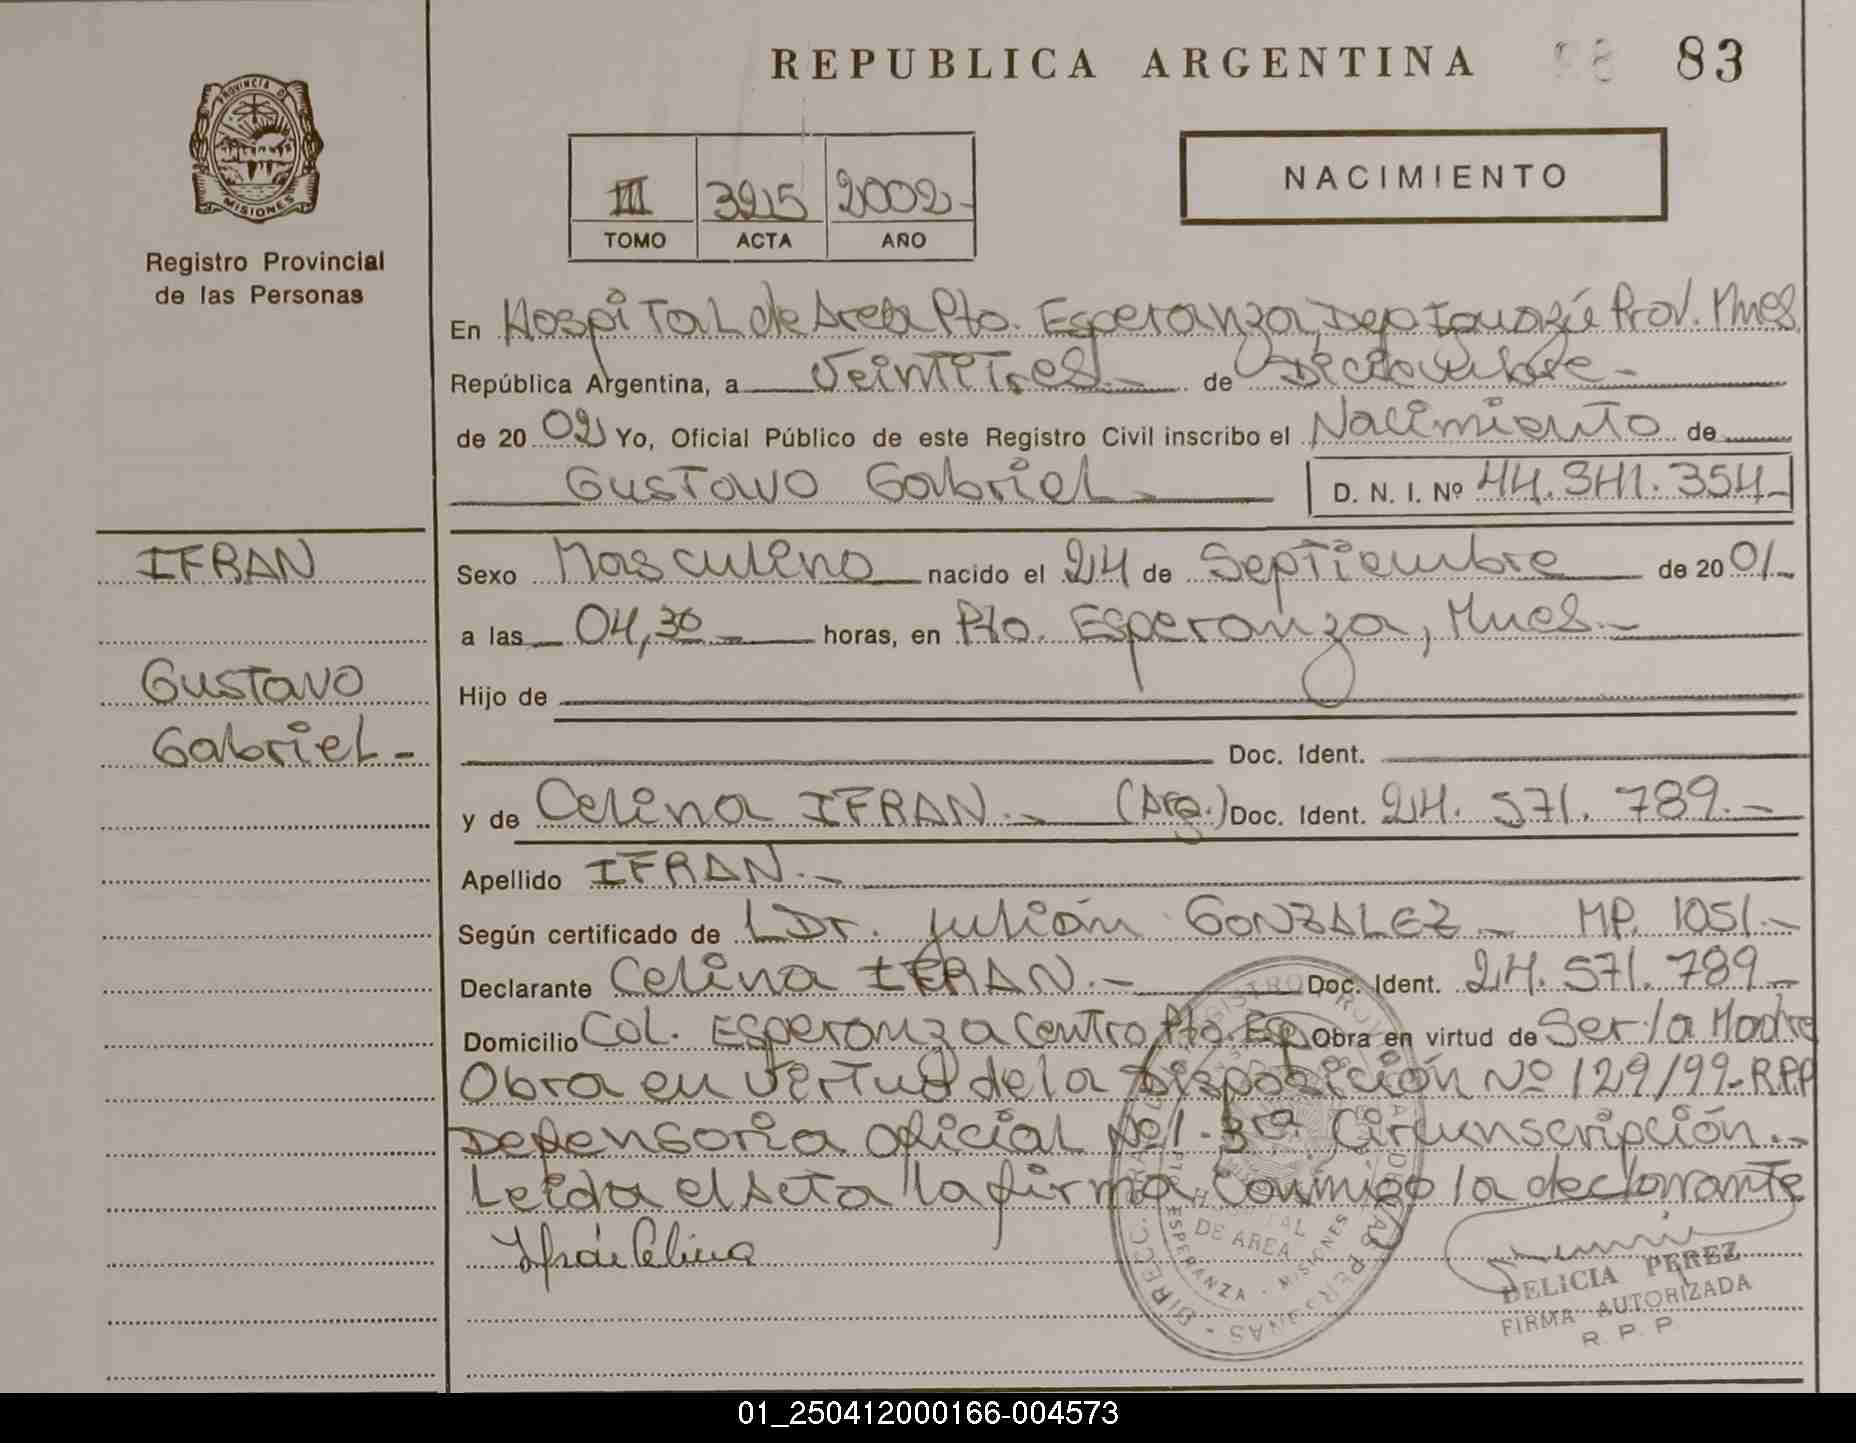 REPUBLICA ARGENTINA 83
PROVINCIA DE
MISIONES
Registro Provincial
de las Personas
III 3215 2002-
TOMO ACTA AÑO
NACIMIENTO
En Hospital de Area Pto. Esperanza, Dep Iguazú Prov. Mnes.
República Argentina, a Veintitres.- de Diciembre-
de 20 02 Yo, Oficial Público de este Registro Civil inscribo el Nacimiento de
Gustavo Gabriel- D. N. I. Nº 44.341.354-
IFRAN
Gustavo
Gabriel-
Sexo Masculino nacido el 24 de Septiembre de 20 01-
a las 04,30 horas, en Pto. Esperanza, Mnes.-
Hijo de
Doc. Ident.
y de Celina IFRAN.- (Arg.) Doc. Ident. 24. 571. 789.-
Apellido IFRAN.-
Según certificado de Dr. Julián GONZALEZ- MP. 1051.-
Declarante Celina IFRAN.- Doc. Ident. 24. 571. 789-
Domicilio Col. Esperanza Centro Pto. Esp. Obra en virtud de Ser la Madre
Obra en Virtud de la Disposición Nº 129/99-R.P.P
Defensoria Oficial Nº1-3ra. Circunscripción.-
Leida el Acta la firma Conmigo la declarante
Ifrán Celina
HOSPITAL
DE AREA
ESPERANZA - MISIONES
DELICIA PEREZ
FIRMA AUTORIZADA
R. P. P.
01_250412000166-004573